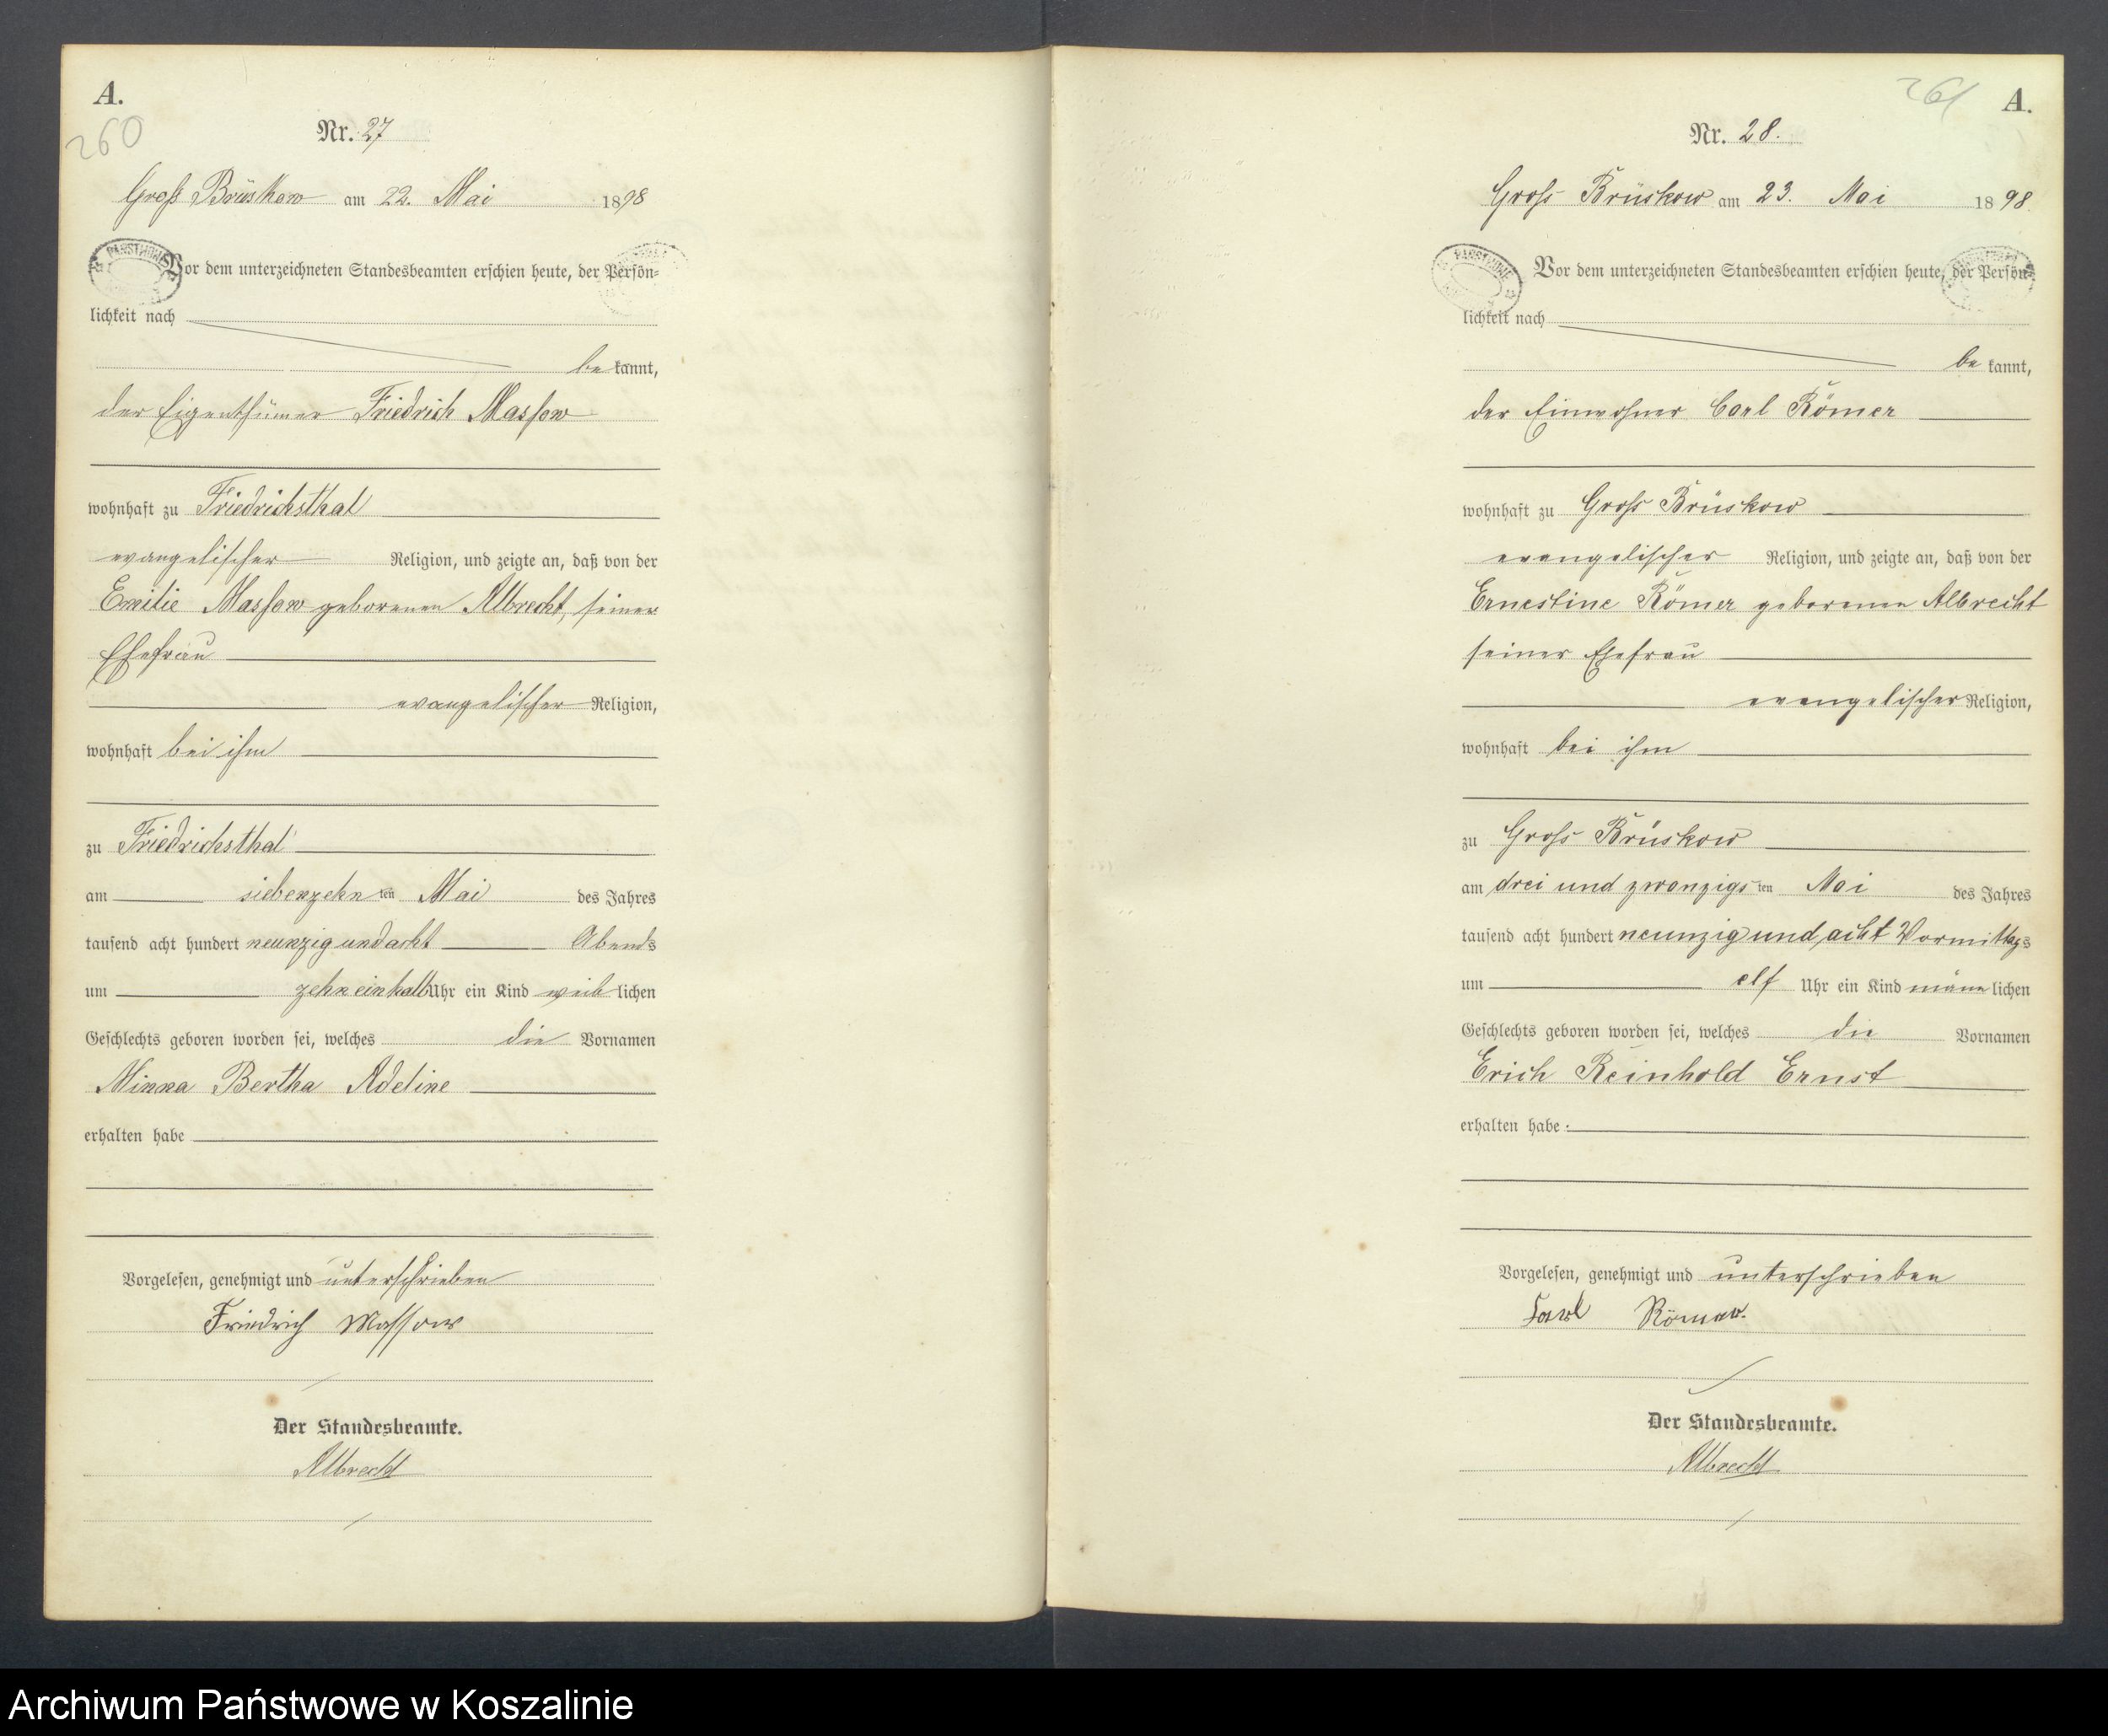 A.
260
Nr. 27
Groß Brüskow am 22. Mai 1898
Vor dem unterzeichneten Standesbeamten erschien heute, der Persön=
lichkeit nach
be kannt,
der Eigenthümer Friedrich Massow
wohnhaft zu Friedrichsthal
evangelischer Religion, und zeigte an, daß von der
Emilie Massow geborenen Albrecht, seiner
Ehefrau
evangelischer Religion,
wohnhaft bei ihm
zu Friedrichsthal
am siebenzehn ten Mai des Jahres
tausend acht hundert neunzig und acht Abends
um zehn einhalb Uhr ein Kind weib lichen
Geschlechts geboren worden sei, welches die Vornamen
Minna Bertha Adeline
erhalten habe
Vorgelesen, genehmigt und unterschrieben
Friedrich Massow
Der Standesbeamte.
Albrecht
261
A.
Nr. 28.
Gross Brüskow am 23. Mai 1898.
Vor dem unterzeichneten Standesbeamten erschien heute, der Persön=
lichkeit nach
be kannt,
der Einwohner Carl Römer
wohnhaft zu Gross Brüskow
evangelischer Religion, und zeigte an, daß von der
Ernestine Römer geborenen Albrecht
seiner Ehefrau
evangelischer Religion,
wohnhaft bei ihm
zu Gross Brüskow
am drei und zwanzigs ten Mai des Jahres
tausend acht hundert neunzig und acht Vormittags
um elf Uhr ein Kind männ lichen
Geschlechts geboren worden sei, welches die Vornamen
Erich Reinhold Ernst
erhalten habe.
Vorgelesen, genehmigt und unterschrieben
Carl Römer.
Der Standesbeamte.
Albrecht
Archiwum Państwowe w Koszalinie